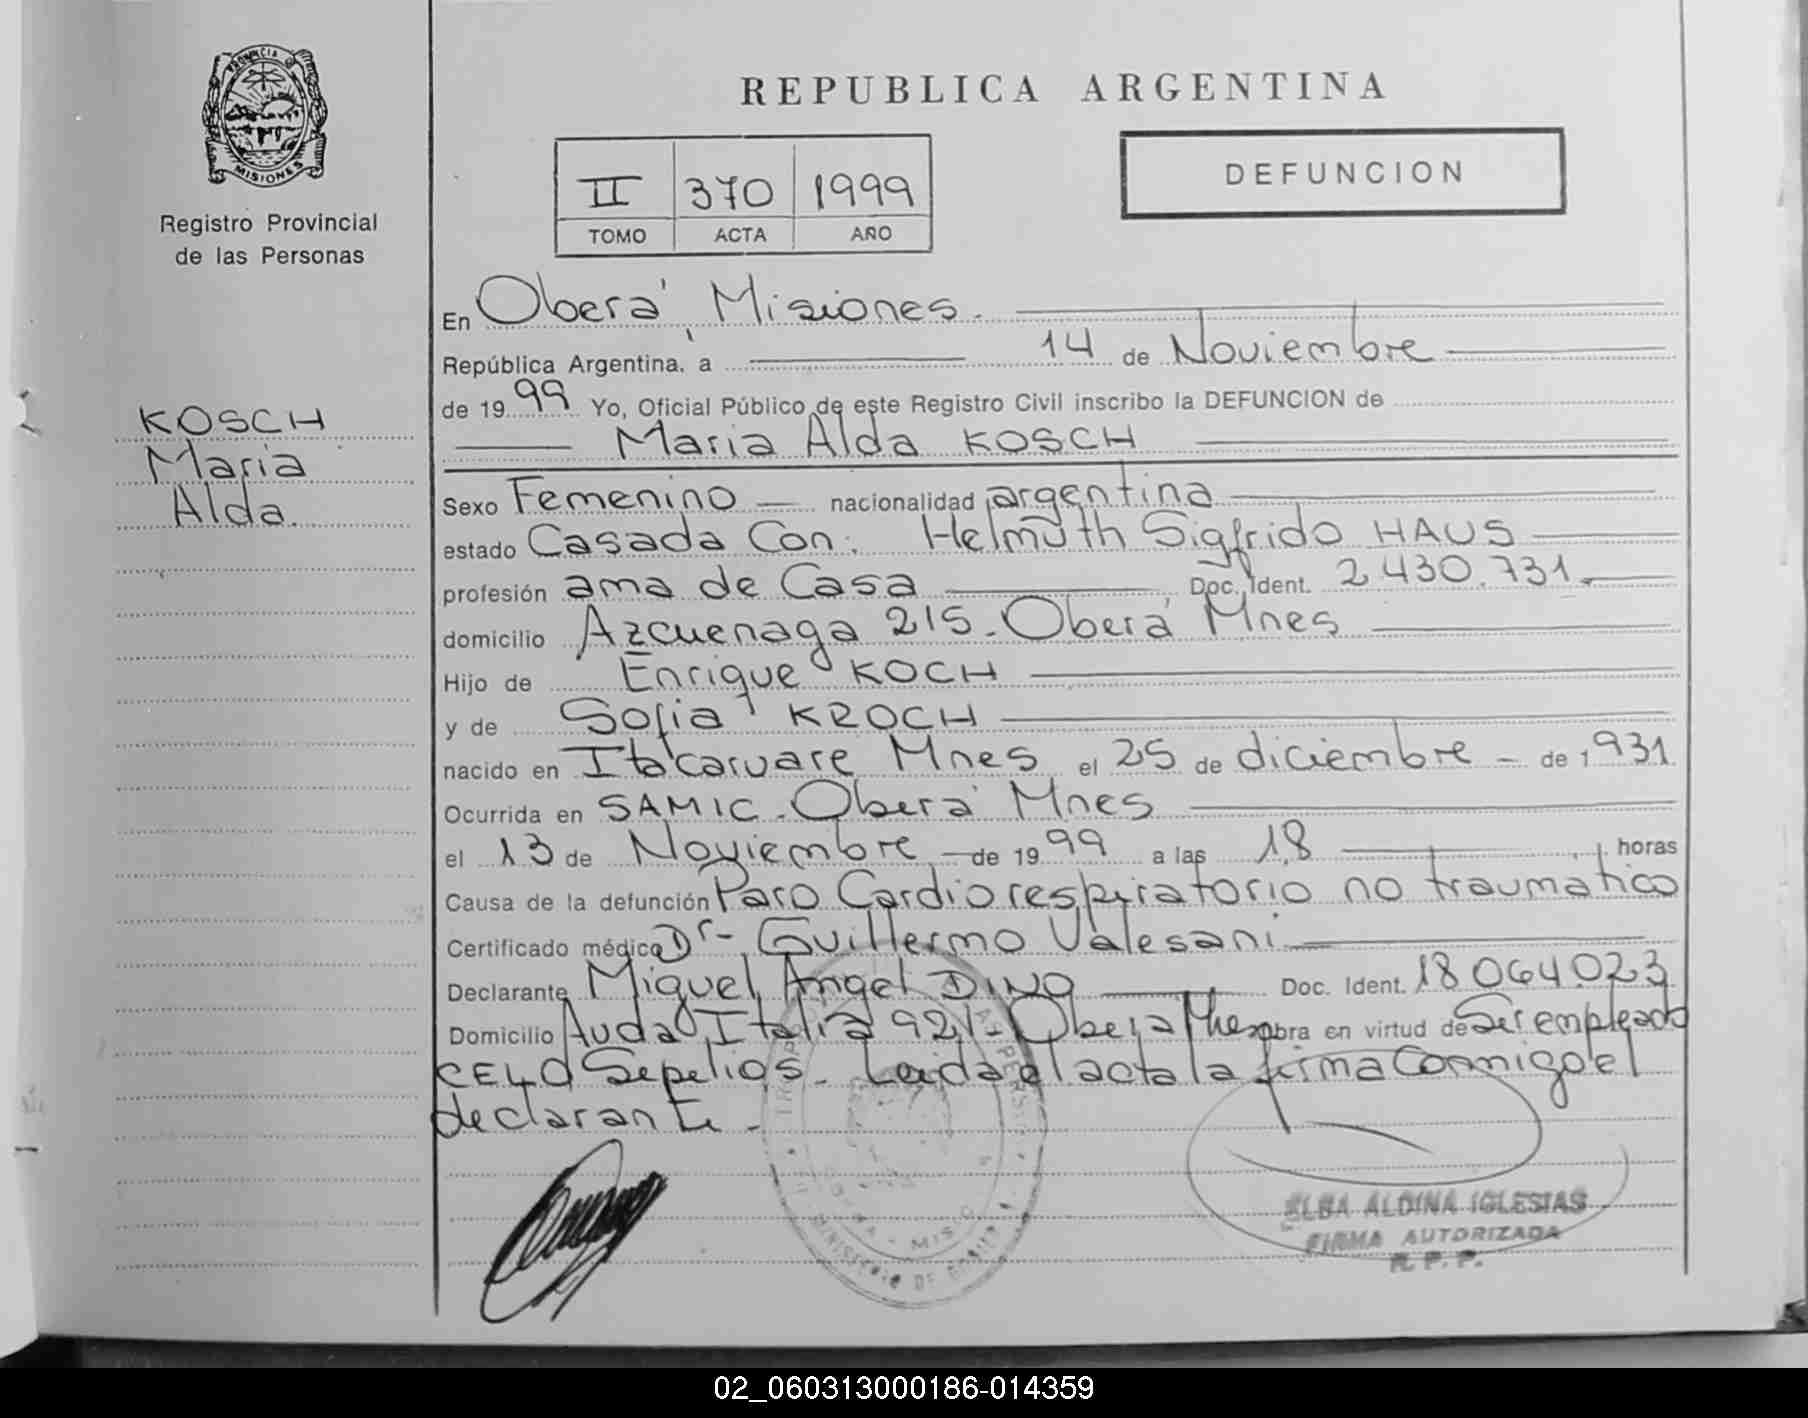 PROVINCIA D
MISIONES
Registro Provincial
de las Personas
KOSCH
Maria
Alda.
REPUBLICA ARGENTINA
II 370 1999
TOMO ACTA AÑO
DEFUNCION
En Oberá Misiones.
República Argentina, a 14 de Noviembre
de 1999 Yo, Oficial Público de este Registro Civil inscribo la DEFUNCION de
Maria Alda KOSCH
Sexo Femenino nacionalidad argentina
estado Casada Con: Helmuth Sigfrido HAUS
profesión ama de Casa Doc. Ident. 2.430.731.
domicilio Azcuenaga 215. Oberá Mnes
Hijo de Enrique KOCH
y de Sofia KROCH
nacido en Itacaruare Mnes el 25 de diciembre de 1931
Ocurrida en SAMIC. Oberá Mnes
el 13 de Noviembre de 1999 a las 18 horas
Causa de la defunción Paro Cardiorespiratorio no traumatico
Certificado médico Dr- Guillermo Valesani
Declarante Miguel Angel DINO Doc. Ident. 18.064.023
Domicilio Avda Italia 921- Obera Mnes obra en virtud de Ser empleado
CELO Sepelios. Leida el acta la firma Conmigo el
declarante.
ELBA ALDINA IGLESIAS
FIRMA AUTORIZADA
R. P. P.
02_060313000186-014359